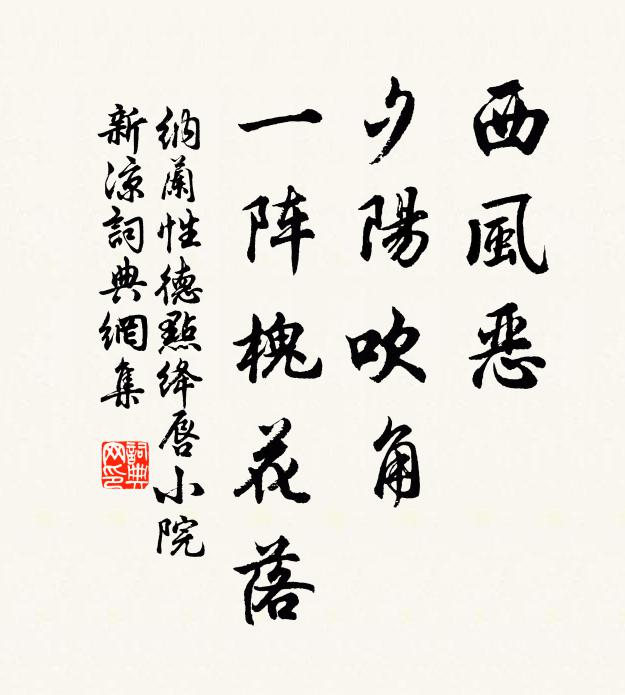 西風恶
夕陽吹角
一阵槐花落
納蘭性德點绛唇小院
新凉詞典網集
詞典网印